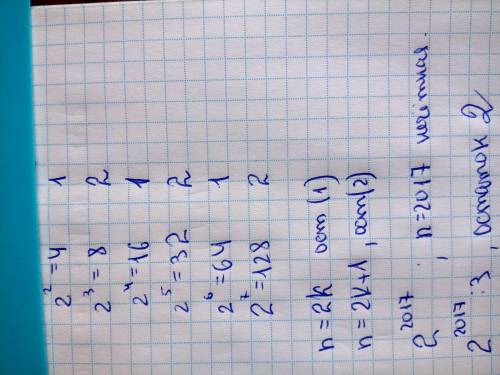 2² = 4 1
2³ = 8 2
2⁴ = 16 1
2⁵ = 32 2
2⁶ = 64 1
2⁷ = 128 2
n = 2k ост (1)
n = 2k+1, ост(2)
2²⁰¹⁷ ; n = 2017 нечётная.
2²⁰¹⁷ : 3, остаток 2